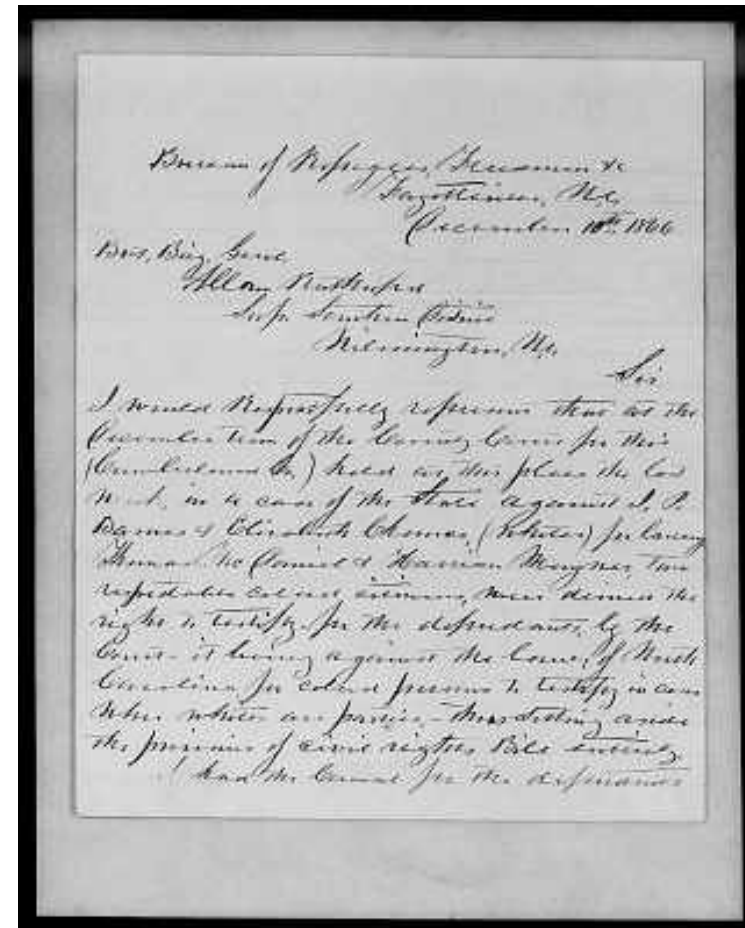 Bureau of Refugees, Freedmen &c
Fayetteville, N.C.
December 10th 1866
Bvt. Brig. Genl
Allan Rutherford
Sup. Southern District
Wilmington, N.C.
Sir
I would Respectfully represent that at the
December term of the County Court for this
(Cumberland Co.) held at this place the last
week, in a case of the State against J. P.
& Elizabeth (Whites) for larceny
Thomas McDaniel & Harrison two
reputable colored citizens, were denied the
right to testify for the defendants, by the
Court - it being against the Laws, of North
Carolina for colored persons to testify in cases
when whites are parties - thus setting aside
the provisions of civil rights Bill entirely.
had the Counsel for the defendants